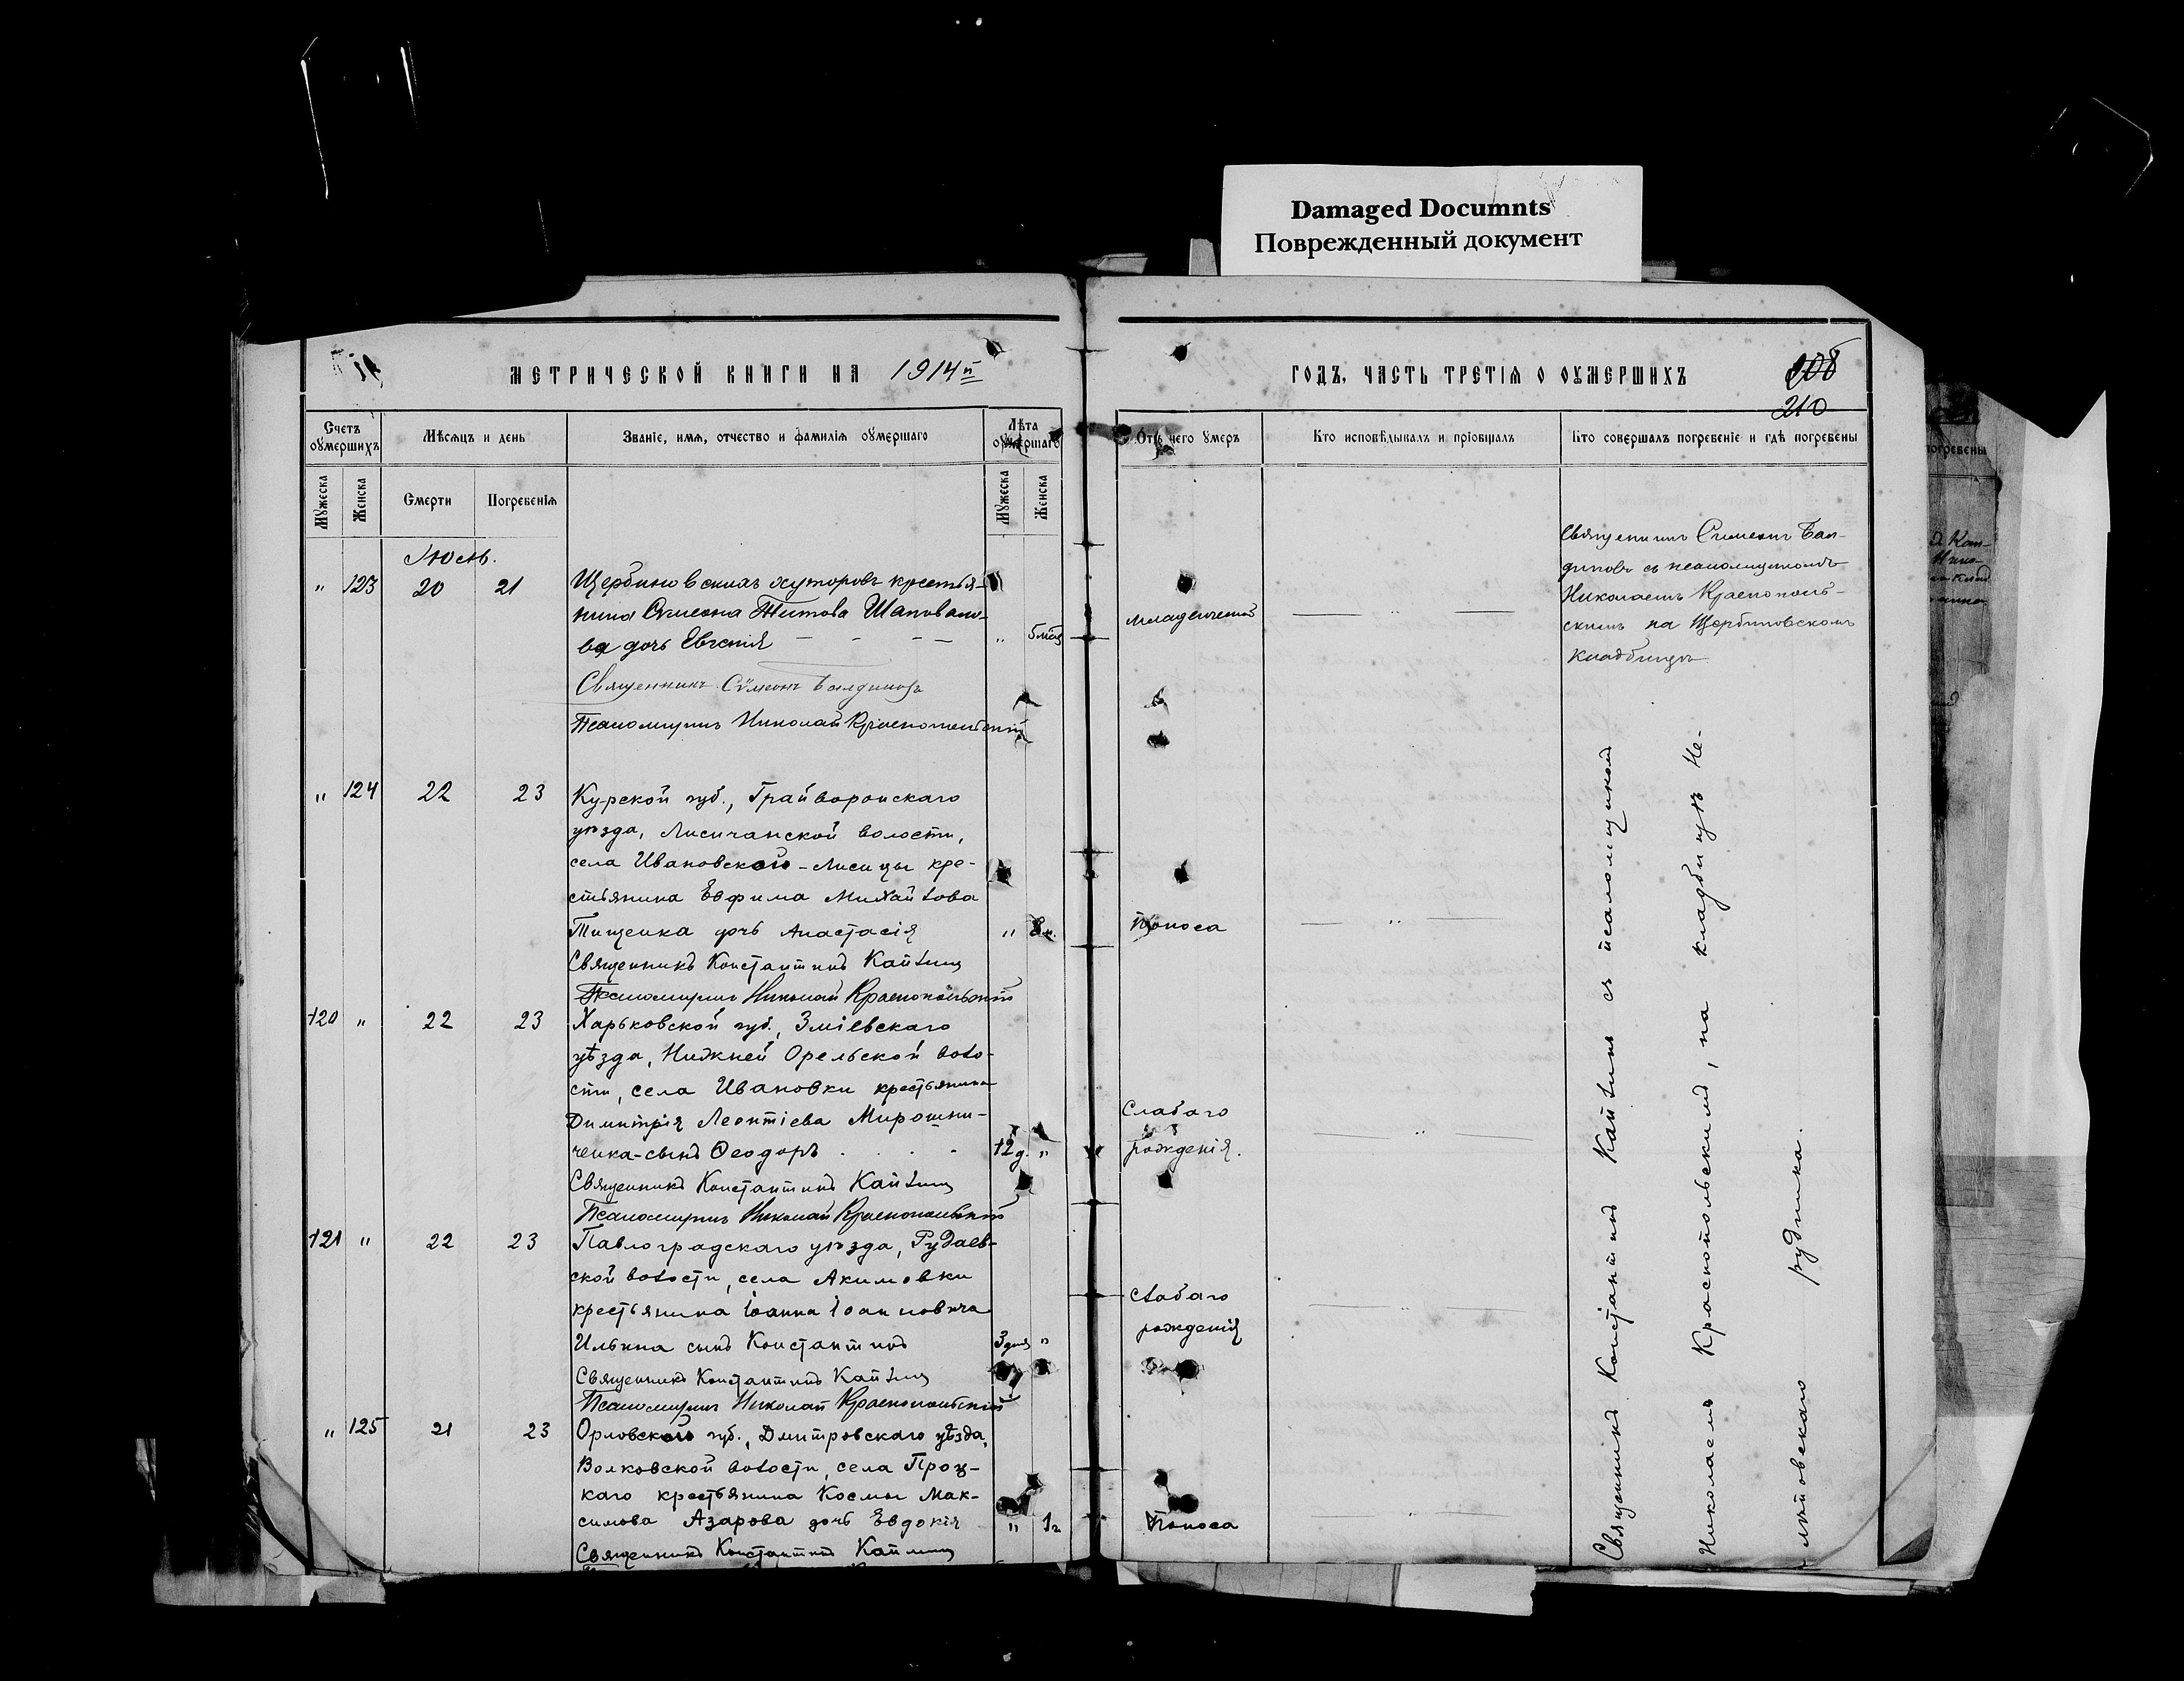 Damaged Documnts
Поврежденный документ
МЕТРИЧЕСКОЙ КНИГИ НА 1914й
ГОДЪ, ЧАСТЬ ТРЕТІЯ О ОУМЕРШИХЪ
208
210
Счетъ оумершихъ
Мѣсяцъ и день
Званіе, имя, отчество и фамилія оумершаго
Лѣта оумершаго
Отъ чего умеръ
Кто исповѣдывалъ и пріобщалъ
Кто совершалъ погребеніе и гдѣ погребены
Мужеска
Женска
Смерти
Погребенія
Мужеска
Женска
Іюль.
" 123 20 21 Щербиновскихъ хуторовъ крестья-
нина Симеона Титова Шапова-
ва дочь Евгенія " 5 мѣс
младенческой
Священникъ Симеонъ Бал-
диновъ съ псаломщикомъ
Николаемъ Краснополь-
скимъ на Щербиновскомъ
кладбищѣ
Священникъ Сѵмеонъ Балдиновъ
Псаломщикъ Николай Краснопольскій
" 124 22 23 Курской губ., Грайворонскаго
уѣзда, Лисичанской волости,
села Ивановской-Лисицы кре-
стьянина Евфима Михайлова
Тищенка дочь Анастасія "
поноса
Священникъ Константинъ
Псаломщикъ Николай Краснопольскій
120 " 22 23 Харьковской губ., Зміевскаго
уѣзда, Нижней Орельской воло-
сти, села Ивановки крестьянина
Димитрія Леонтіева Мирошни-
ченка-сынъ Ѳеодоръ 12 д. "
Слабаго
рожденія.
Священникъ Константинъ
Псаломщикъ Николай Краснопольскій
121 " 22 23 Павлоградскаго уѣзда, Рудаев-
ской волости, села Акимовки
крестьянина Іоанна Іоанновича
Ильина сынъ Константинъ 3 дня "
слабаго
рожденія
Священникъ Константинъ
Псаломщикъ Николай Краснопольскій
" 125 21 23 Орловской губ., Дмитровскаго уѣзда,
Волковской волости, села Проц-
каго крестьянина Космы Мак-
симова Азарова дочь Евдокія " 1 г.
поноса
Священникъ Константинъ
Священникъ Константинъ съ псаломщикомъ
Николаемъ Краснопольскимъ, на кладбищѣ Не-
рудника.
погребены